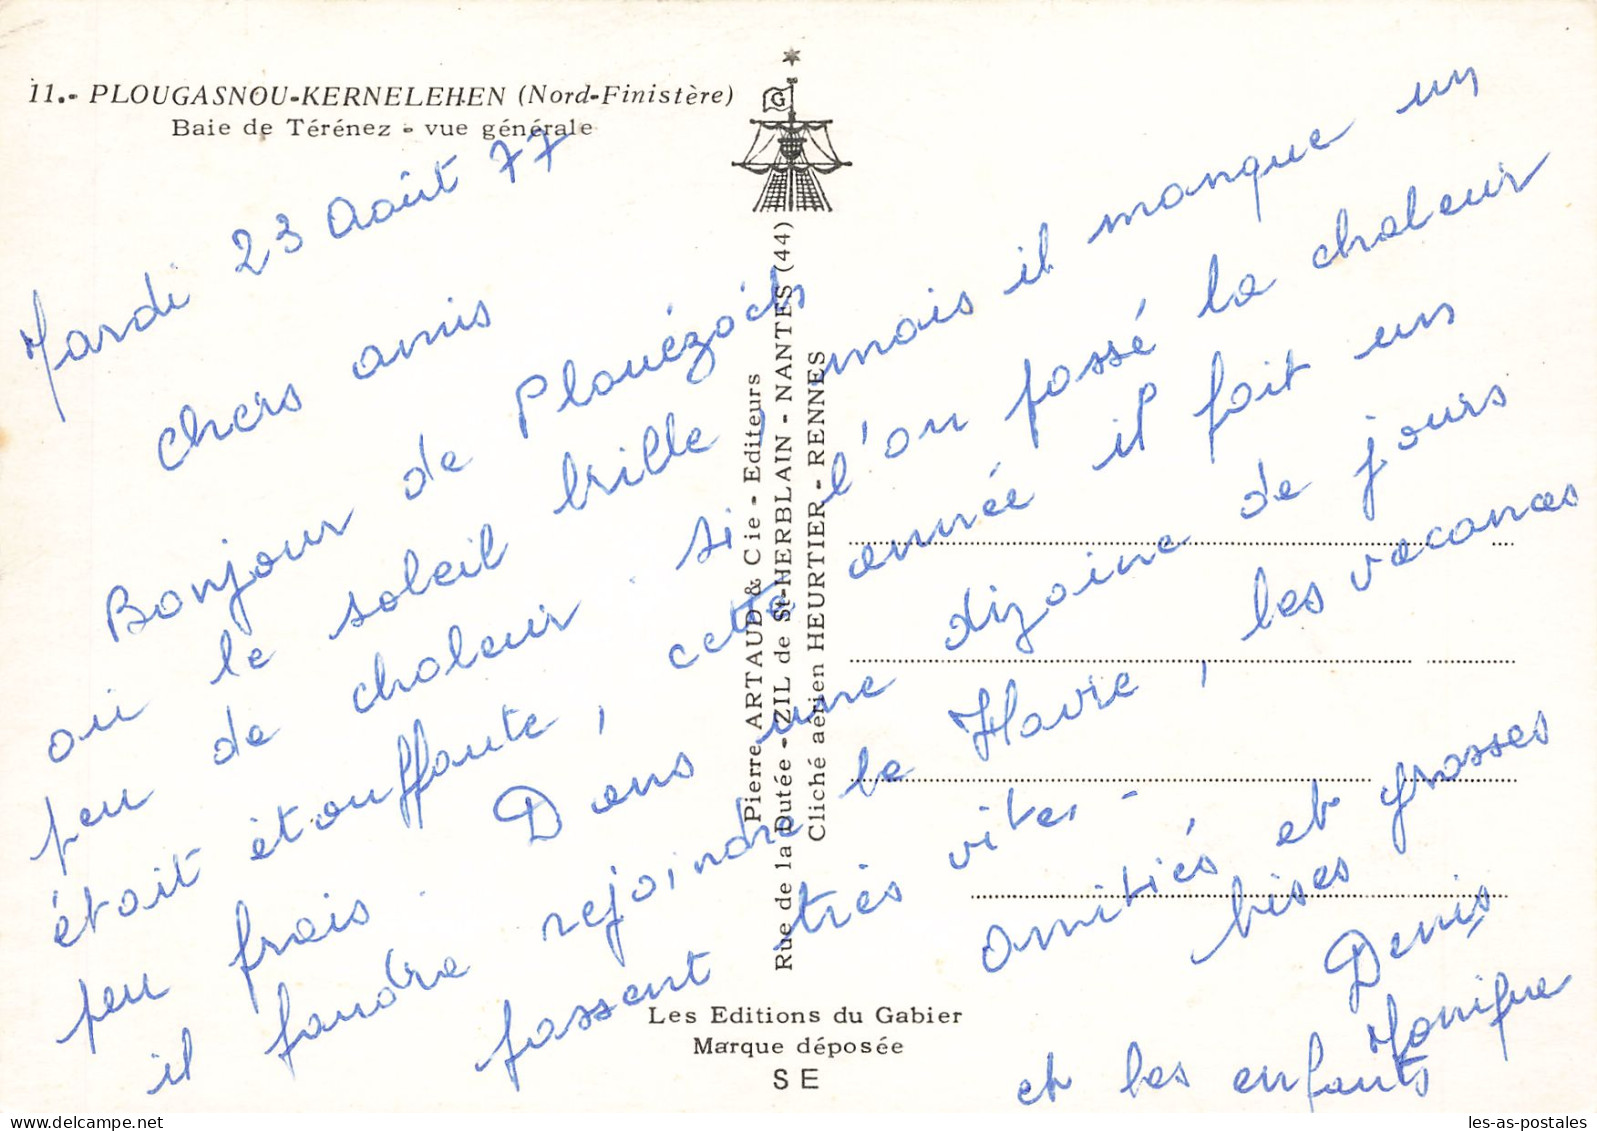 11.- PLOUGASNOU-KERNELEHEN (Nord-Finistère)
Baie de Térénez - vue générale
G
Mardi 23 Août 77
Chers amis
Bonjour de Plouézoc'h
où le soleil brille, mais il manque un
peu de chaleur. si l'on passé la chaleur
était étouffante, cette année il fait un
peu frais. Dans une dizaine de jours
il faudra rejoindre le Havre, les vacances
passent très vite. -
Amitiés et grosses
bises
Denis
Monique
et les enfants
Pierre ARTAUD & Cie - Editeurs
Rue de la Dutée - ZIL de St-HERBLAIN - NANTES (44)
Cliché aérien HEURTIER - RENNES
Les Editions du Gabier
Marque déposée
SE
les-as-postales